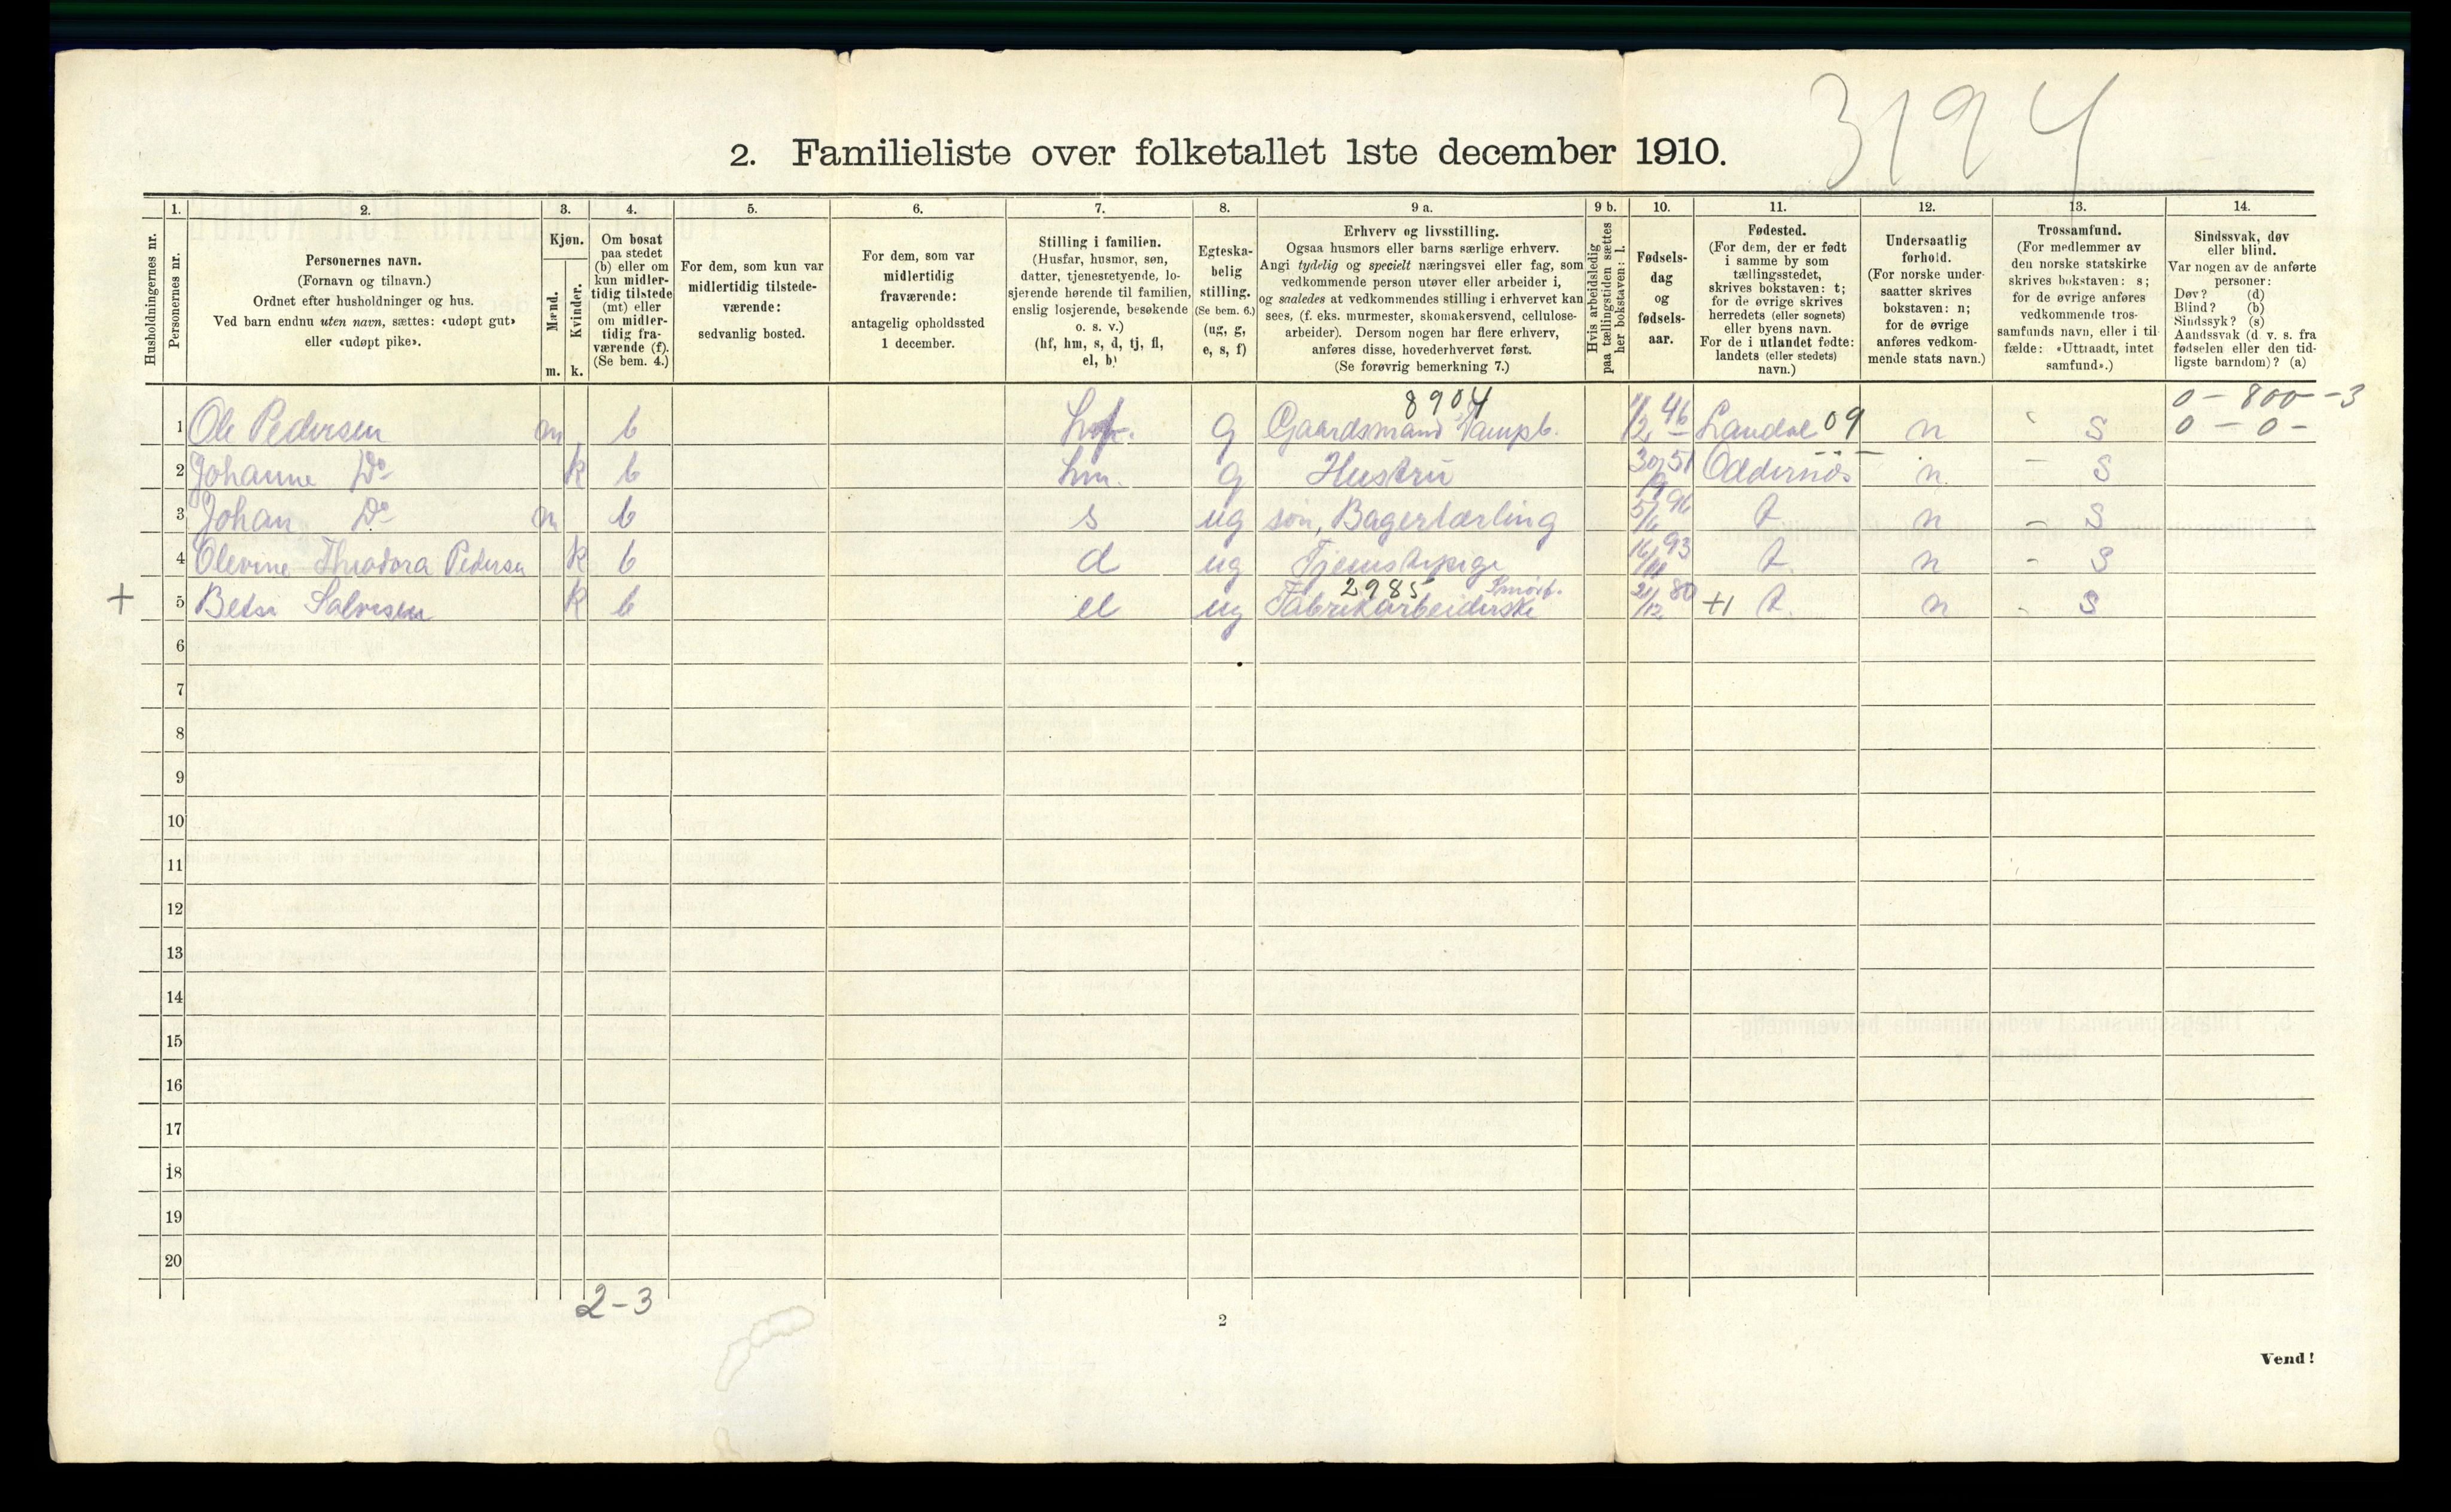 3194
2. Familieliste over folketallet 1ste december 1910.
Husholdningernes nr.
1.
Personernes nr.
2.
Personernes navn.
(Fornavn og tilnavn.)
Ordnet efter husholdninger og hus.
Ved barn endnu uten navn, sættes: «udøpt gut»
eller «udøpt pike».
3.
Kjøn.
Mænd.
Kvinder.
m. k.
4.
Om bosat
paa stedet
(b) eller om
kun midler-
tidig tilstede
(mt) eller
om midler-
tidig fra-
værende (f).
(Se bem. 4.)
5.
For dem, som kun var
midlertidig tilstede-
værende:
sedvanlig bosted.
6.
For dem, som var
midlertidig
fraværende:
antagelig opholdssted
1 december.
7.
Stilling i familien.
(Husfar, husmor, søn,
datter, tjenestetyende, lo-
sjerende hørende til familien,
enslig losjerende, besøkende
o. s. v.)
(hf, hm, s, d, tj, fl,
el, b)
8.
Egteska-
belig
stilling.
(Se bem. 6.)
(ug, g,
e, s, f)
9 a.
Erhverv og livsstilling.
Ogsaa husmors eller barns særlige erhverv.
Angi tydelig og specielt næringsvei eller fag, som
vedkommende person utøver eller arbeider i,
og saaledes at vedkommendes stilling i erhvervet kan
sees, (f. eks. murmester, skomakersvend, cellulose-
arbeider). Dersom nogen har flere erhverv,
anføres disse, hovederhvervet først.
(Se forøvrig bemerkning 7.)
9 b.
Hvis arbeidsledig
paa tællingstiden sættes
her bokstaven: l.
10.
Fødsels-
dag
og
fødsels-
aar.
11.
Fødested.
(For dem, der er født
i samme by som
tællingsstedet,
skrives bokstaven: t;
for de øvrige skrives
herredets (eller sognets)
eller byens navn.
For de i utlandet fødte:
landets (eller stedets)
navn.)
12.
Undersaatlig
forhold.
(For norske under-
saatter skrives
bokstaven: n;
for de øvrige
anføres vedkom-
mende stats navn.)
13.
Trossamfund.
(For medlemmer av
den norske statskirke
skrives bokstaven: s;
for de øvrige anføres
vedkommende tros-
samfunds navn, eller i til
fælde: «Uttraadt, intet
samfund».)
14.
Sindssvak, døv
eller blind.
Var nogen av de anførte
personer:
Døv? (d)
Blind? (b)
Sindssyk? (s)
Aandssvak (d. v. s. fra
fødselen eller den tid-
ligste barndom)? (a)
8904 0 - 800 - 3
1 Ole Pedersen m b hf. g Gaardsmand Dampb. 11/2 46 Landal 09 n s 0 - 0 -
2 Johanne Do k b hm. g Hustru 30/9 51 Oddernæs n. - s
3 Johan Do m b s ug søn, Bagerlærling 5/6 96 t n - s
4 Olevine Theodora Pedersen k b d ug Tjenestepige 93 t. n - s
2985
+ 5 Betsi Salvesen k b el ug Fabrikarbeiderske 21/12 80 +1 t. n - s
6
7
8
9
10
11
12
13
14
15
16
17
18
19
20
2-3
2
Vend!